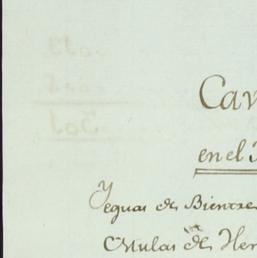 Cav
en el
Yeguas de Bientre
Mulas de Her